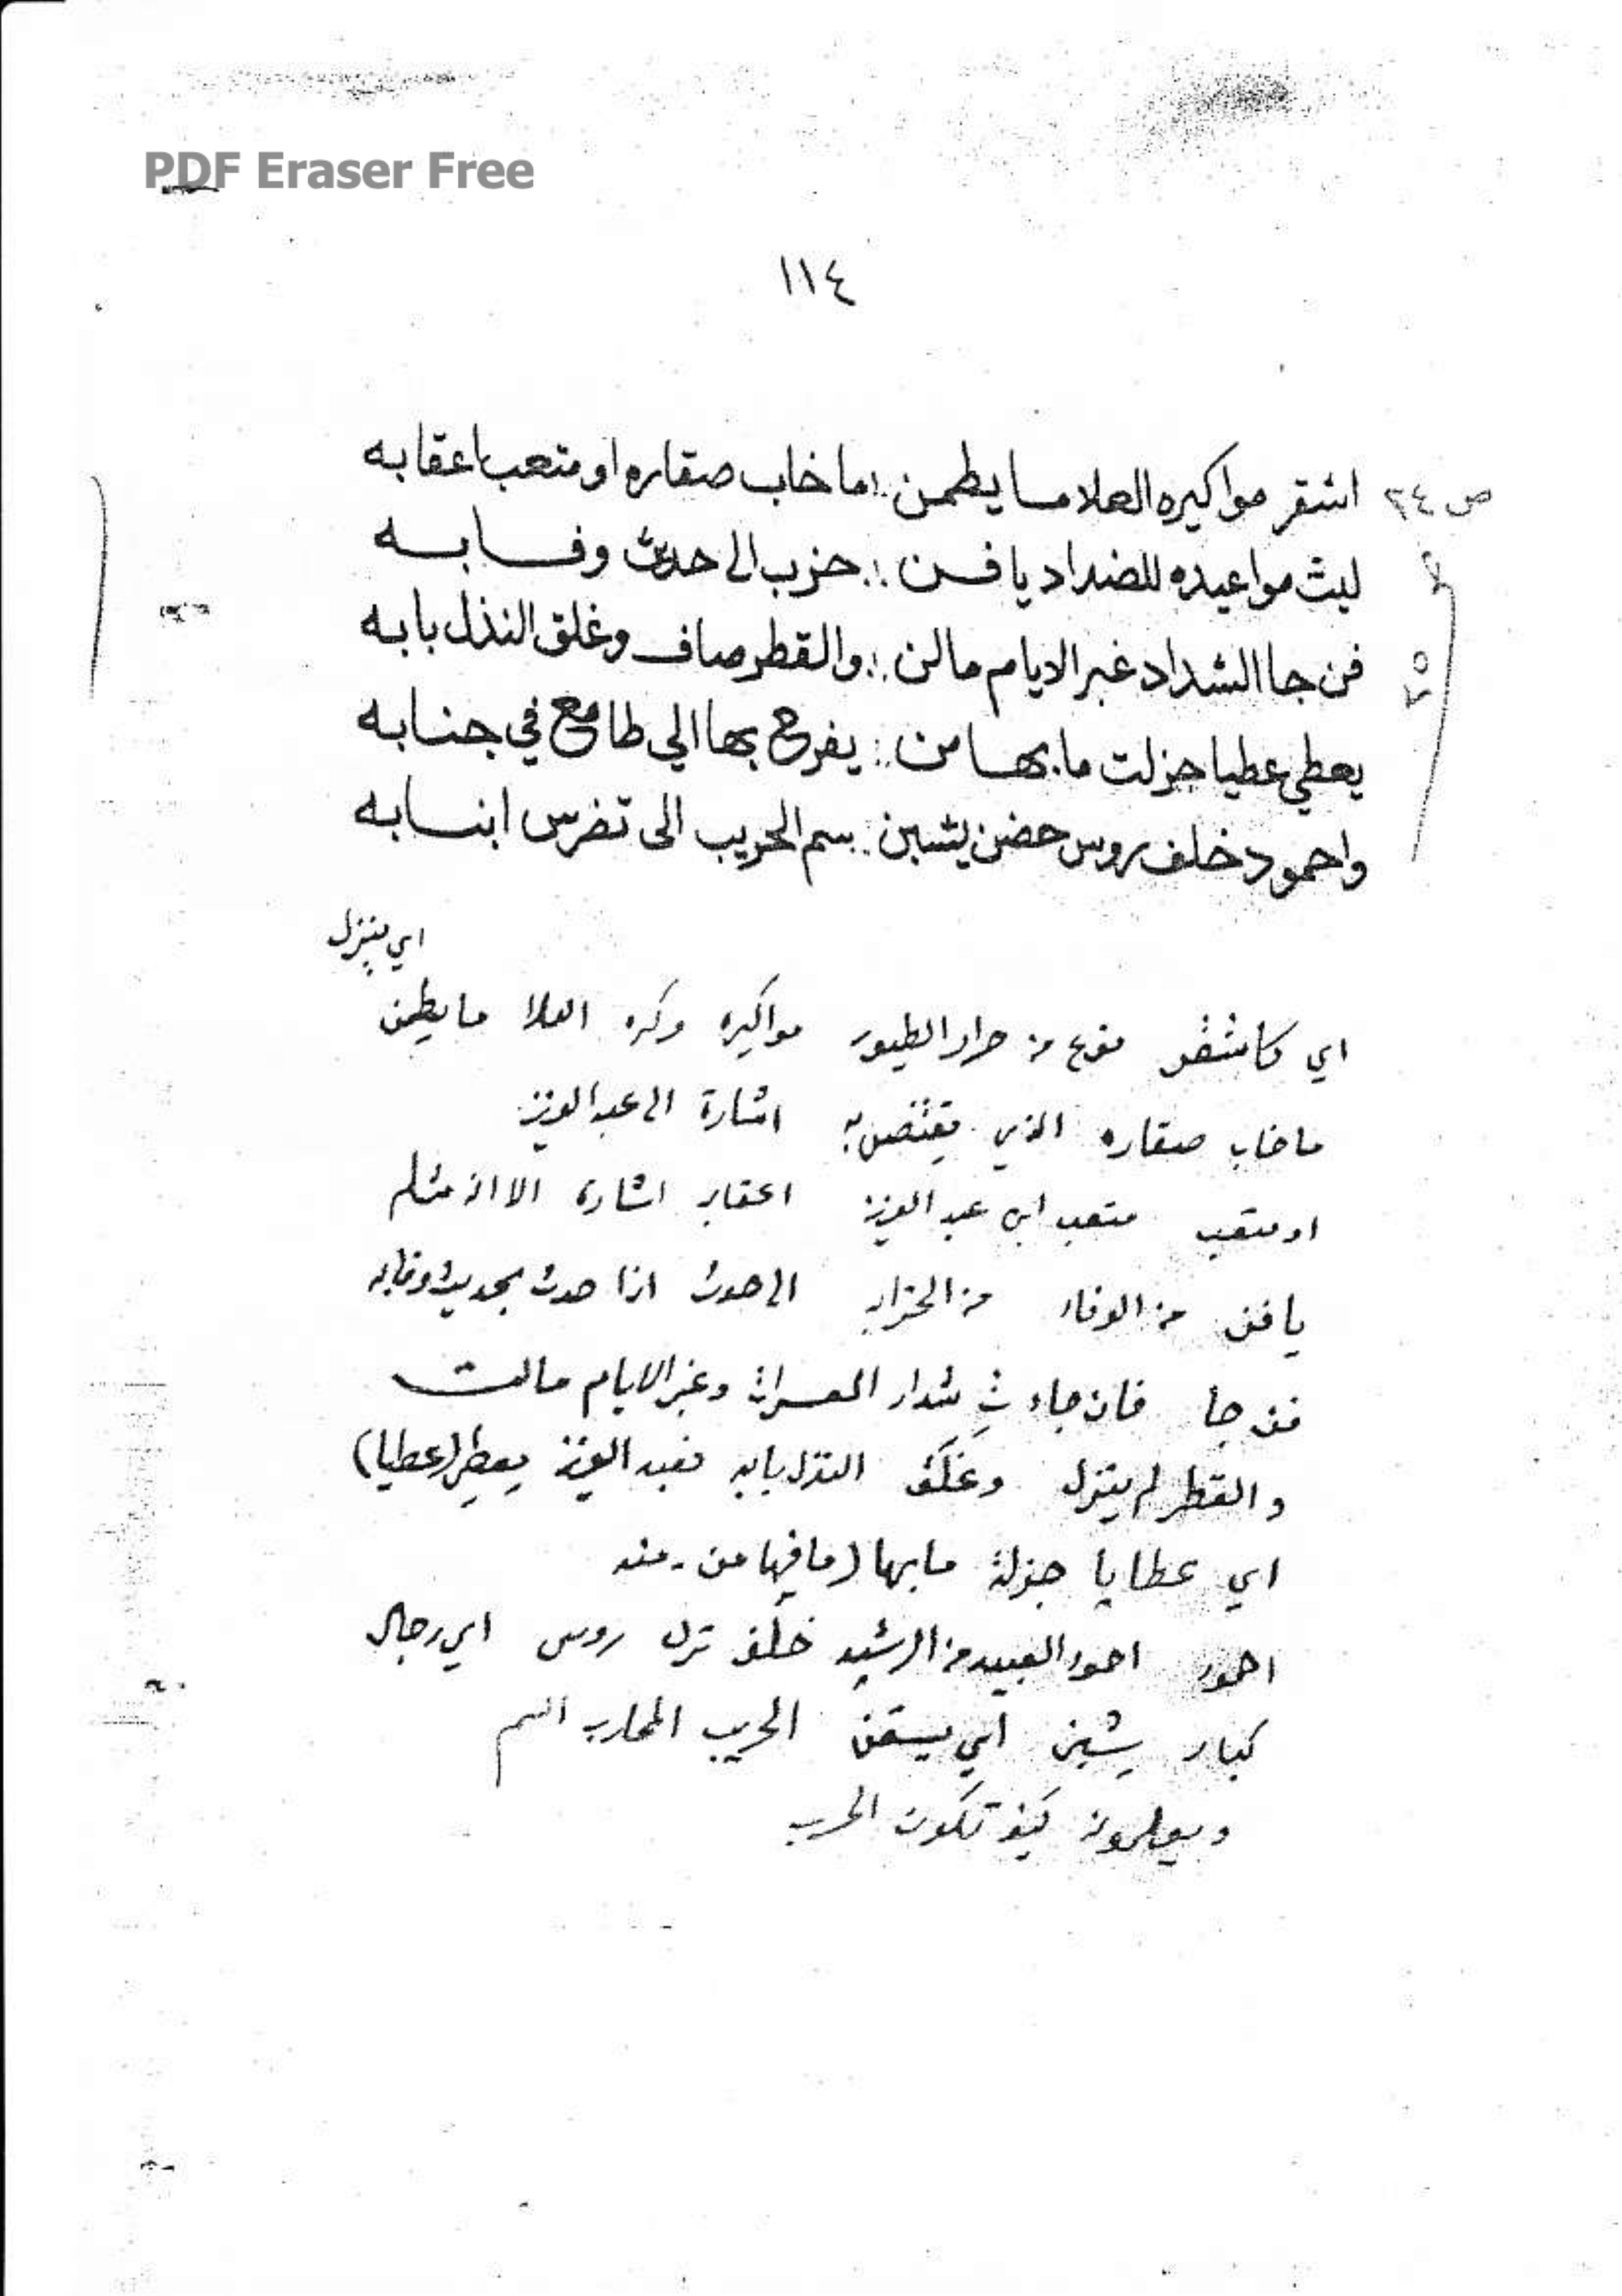 PDF Eraser Free
١١٤
ص ٢٤ اشقر مواكيره العلا ما يطمن ؛ ما خاب صقاره او متعب اعقابه
ليث مواعيده للضداد يافن ؛ حزب الى حدث وفابه
٢٥ فن جا الشداد غبر الايام مالن ؛ والقطر صاف وغلق النذل بابه
يعطي عطيا جزلت ما بها من ؛ يفرح بها الي طامع في جنابه
واحمود خلف روس حضن يشبن ؛ بسم الحريب الى تضرس انسابه
اي ينزل
اي كاشقر نوع من حرار الطيور مواكيره وكره العلا ما يطمن
ما خاب صقاره الذي يقتنص به اشارة الى عبد العزيز
او متعب متعب ابن عبد العزيز اعقابه اشارة الا انه مثله
يافن من الوفاء من الى حدث اذا حدث
فن جا فان جاءت شداد وغبر الايام مالت
والقطر لم ينزل وغلق النذل بابه فعبد العزيز يعطي (عطيا)
اي عطايا جزلة ما بها (ما فيها من - منه
احمود احمود العبيد من الرشيد خلف ترك روس اي رجال
كبار يشبن اي يسقن الحريب المحارب السم
ويعلمونه كيف تكون الحرب